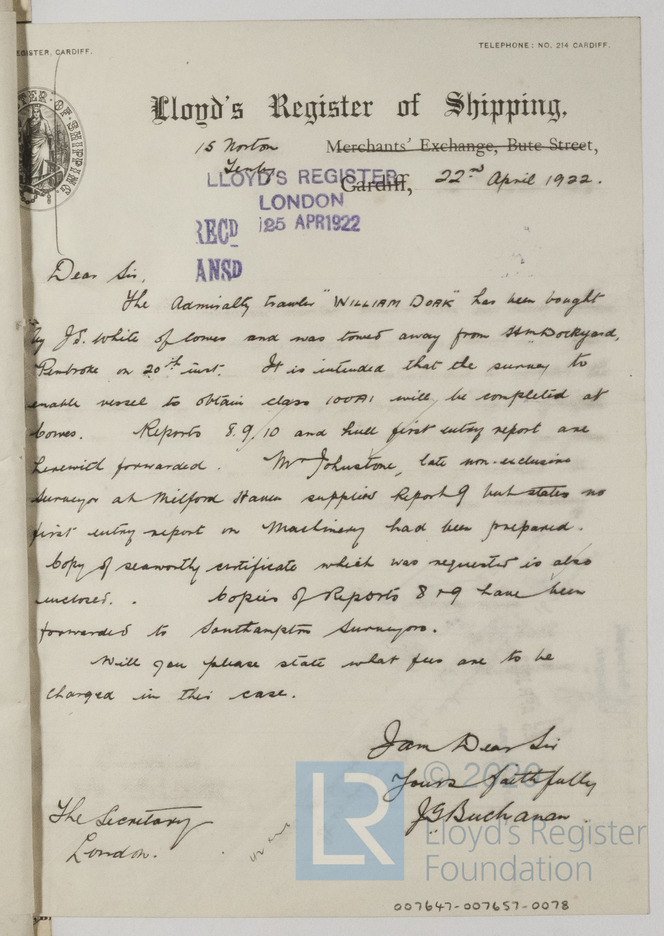 EGISTER, CARDIFF.
TELEPHONE: NO. 214 CARDIFF.
Lloyd's Register of Shipping,
15 Norton
Merchants' Exchange, Bute Street,
Tenby
Cardiff, 22nd April 1922.
LLOYD'S REGISTER
LONDON
RECD 25 APR 1922
ANSD
Dear Sir,
The Admiralty trawler "WILLIAM DOAK" has been bought
by J.S. White of Cowes and was towed away from HM Dockyard,
Pembroke on 20th inst. It is intended that the survey to
enable vessel to obtain class 100A1 will be completed at
Cowes. Reports 8.9/10 and hull first entry report are
herewith forwarded. Mr Johnstone, late non-exclusive
Surveyor at Milford Haven supplied Report 9 but states no
first entry report on Machinery had been prepared.
Copy of seaworthy certificate which was requested is also
enclosed. Copies of Reports 8 & 9 have been
forwarded to Southampton Surveyors.
Will you please state what fees are to be
charged in this case.
I am Dear Sir
Yours faithfully
J G Buchanan.
The Secretary
London.
LR
© 2020
Lloyd's Register
Foundation
007647-007657-0078